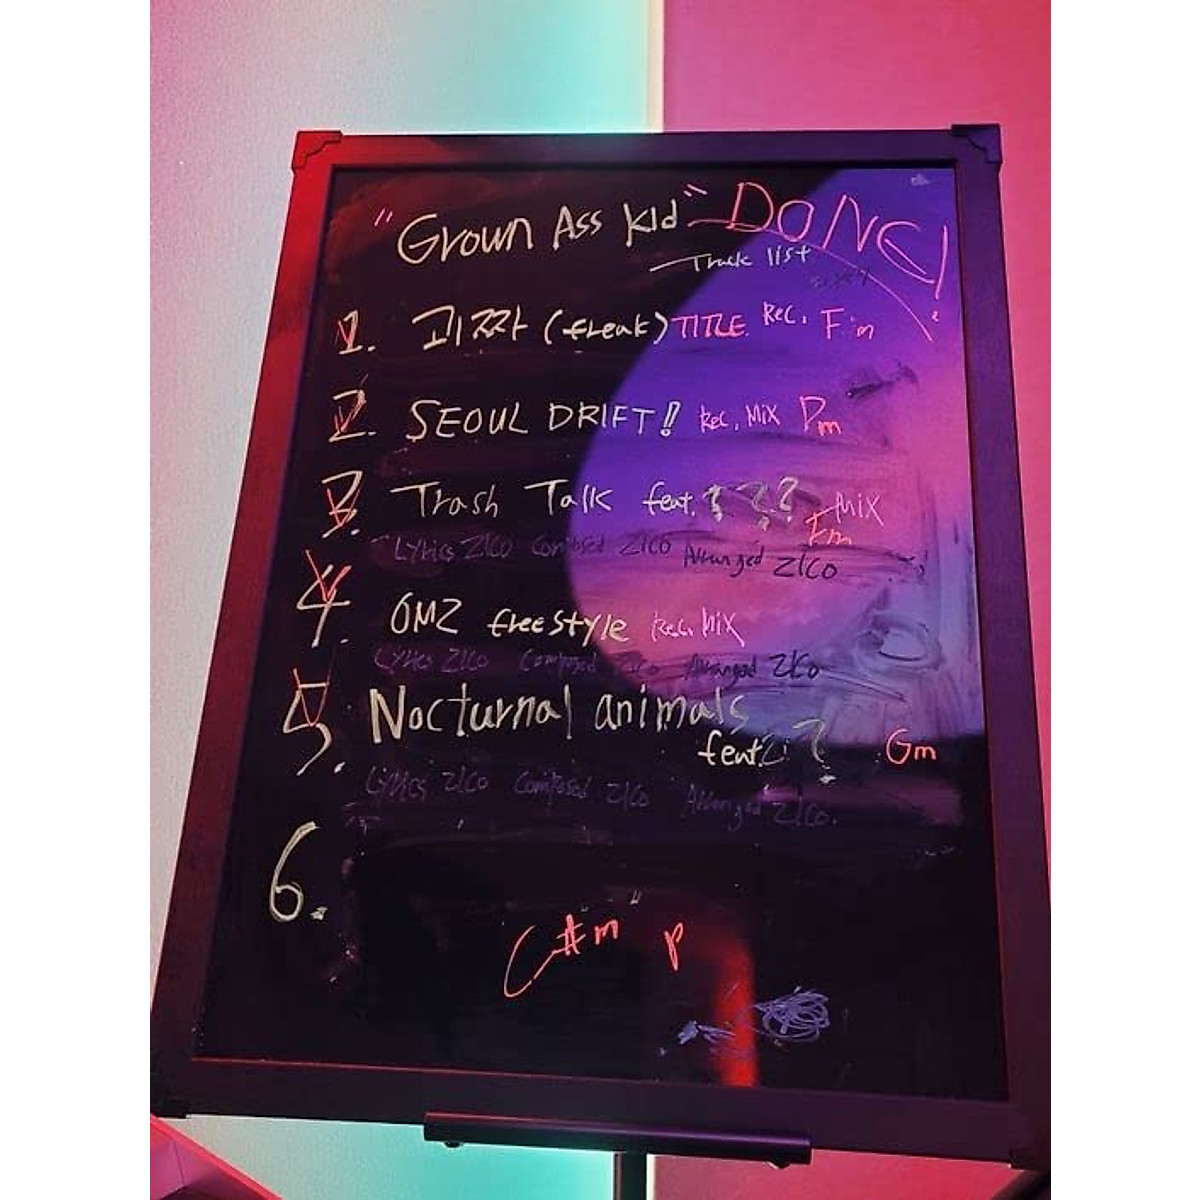 "Grown Ass kid" DONE!
Track list
1. 괴짜 (freak) TITLE. Rec. Fm
2. SEOUL DRIFT! Rec. Mix Dm
3. Trash Talk feat. ??? Mix
Fm
Lyrics ZICO Composed ZICO Arranged ZICO
4. OMZ freestyle Rec. Mix
Lyrics ZICO Composed ZICO Arranged ZICO
5. Nocturnal animals
feat. ? Gm
Lyrics ZICO Composed ZICO Arranged ZICO.
6.
C#m P